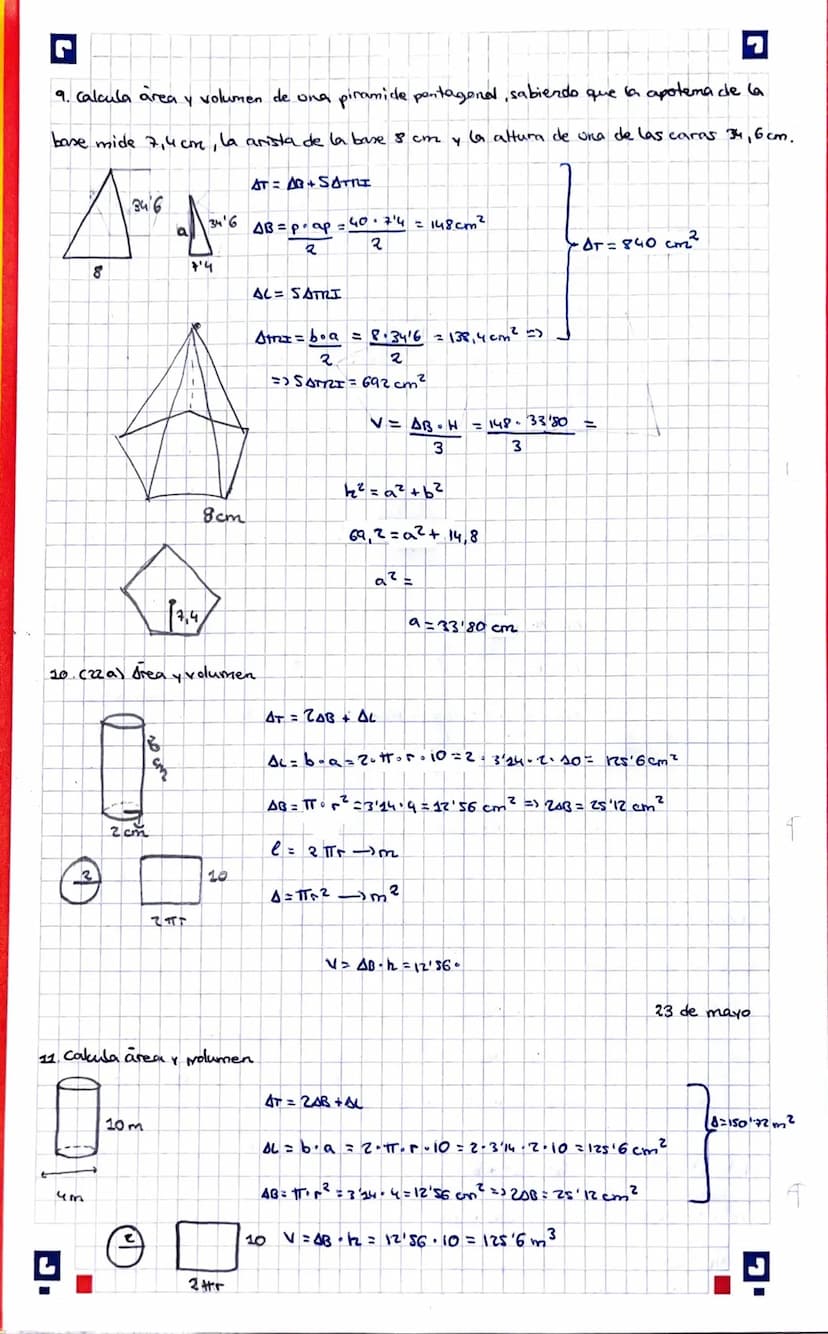 9. Calcula área y volumen de una piramide pentagonal, sabiendo que la apotema de la
base mide 7,4 cm, la arista de la base 8 cm y la altura de una de las caras 34,6 cm.
34'6
8
a
34'6
7'4
AT = AB + 5ATRI
AB = p · ap / 2 = 40 · 7'4 / 2 = 148 cm²
AT = 840 cm²
AL = 5ATRI
ATRI = b · a / 2 = 8 · 34'6 / 2 = 138,4 cm² =>
=> 5ATRI = 692 cm²
V = AB · H / 3 = 148 · 33'80 / 3 =
8cm
h² = a² + b²
69,2 = a² + 14,8
a² =
7,4
a = 33'80 cm
10. (22a) Área y volumen
2 cm
AT = 2AB + AL
AL = b · a = 2 · π · r · 10 = 2 · 3'14 · 2 · 10 = 125'6 cm²
AB = π · r² = 3'14 · 4 = 12'56 cm² => 2AB = 25'12 cm²
l = 2πr → m
2
10
2πr
A = πr² → m²
V = AB · h = 12'56 ·
23 de mayo
11. Calcula área y volumen
10 m
4m
AT = 2AB + AL
AL = b · a = 2 · π · r · 10 = 2 · 3'14 · 2 · 10 = 125'6 cm²
A = 150'72 m²
AB = π · r² = 3'14 · 4 = 12'56 cm² => 2AB = 25'12 cm²
2
10
2πr
V = AB · h = 12'56 · 10 = 125'6 m³